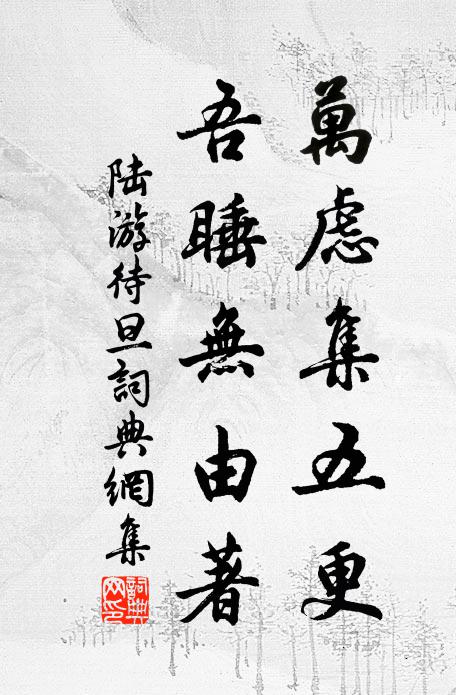 萬慮集五更
吾睡無由著
陆游待旦詞典網集
詞典網印